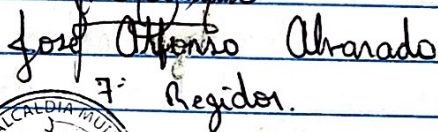 José Alfonso Alvarado
7° Regidor.
ALCALDIA MU